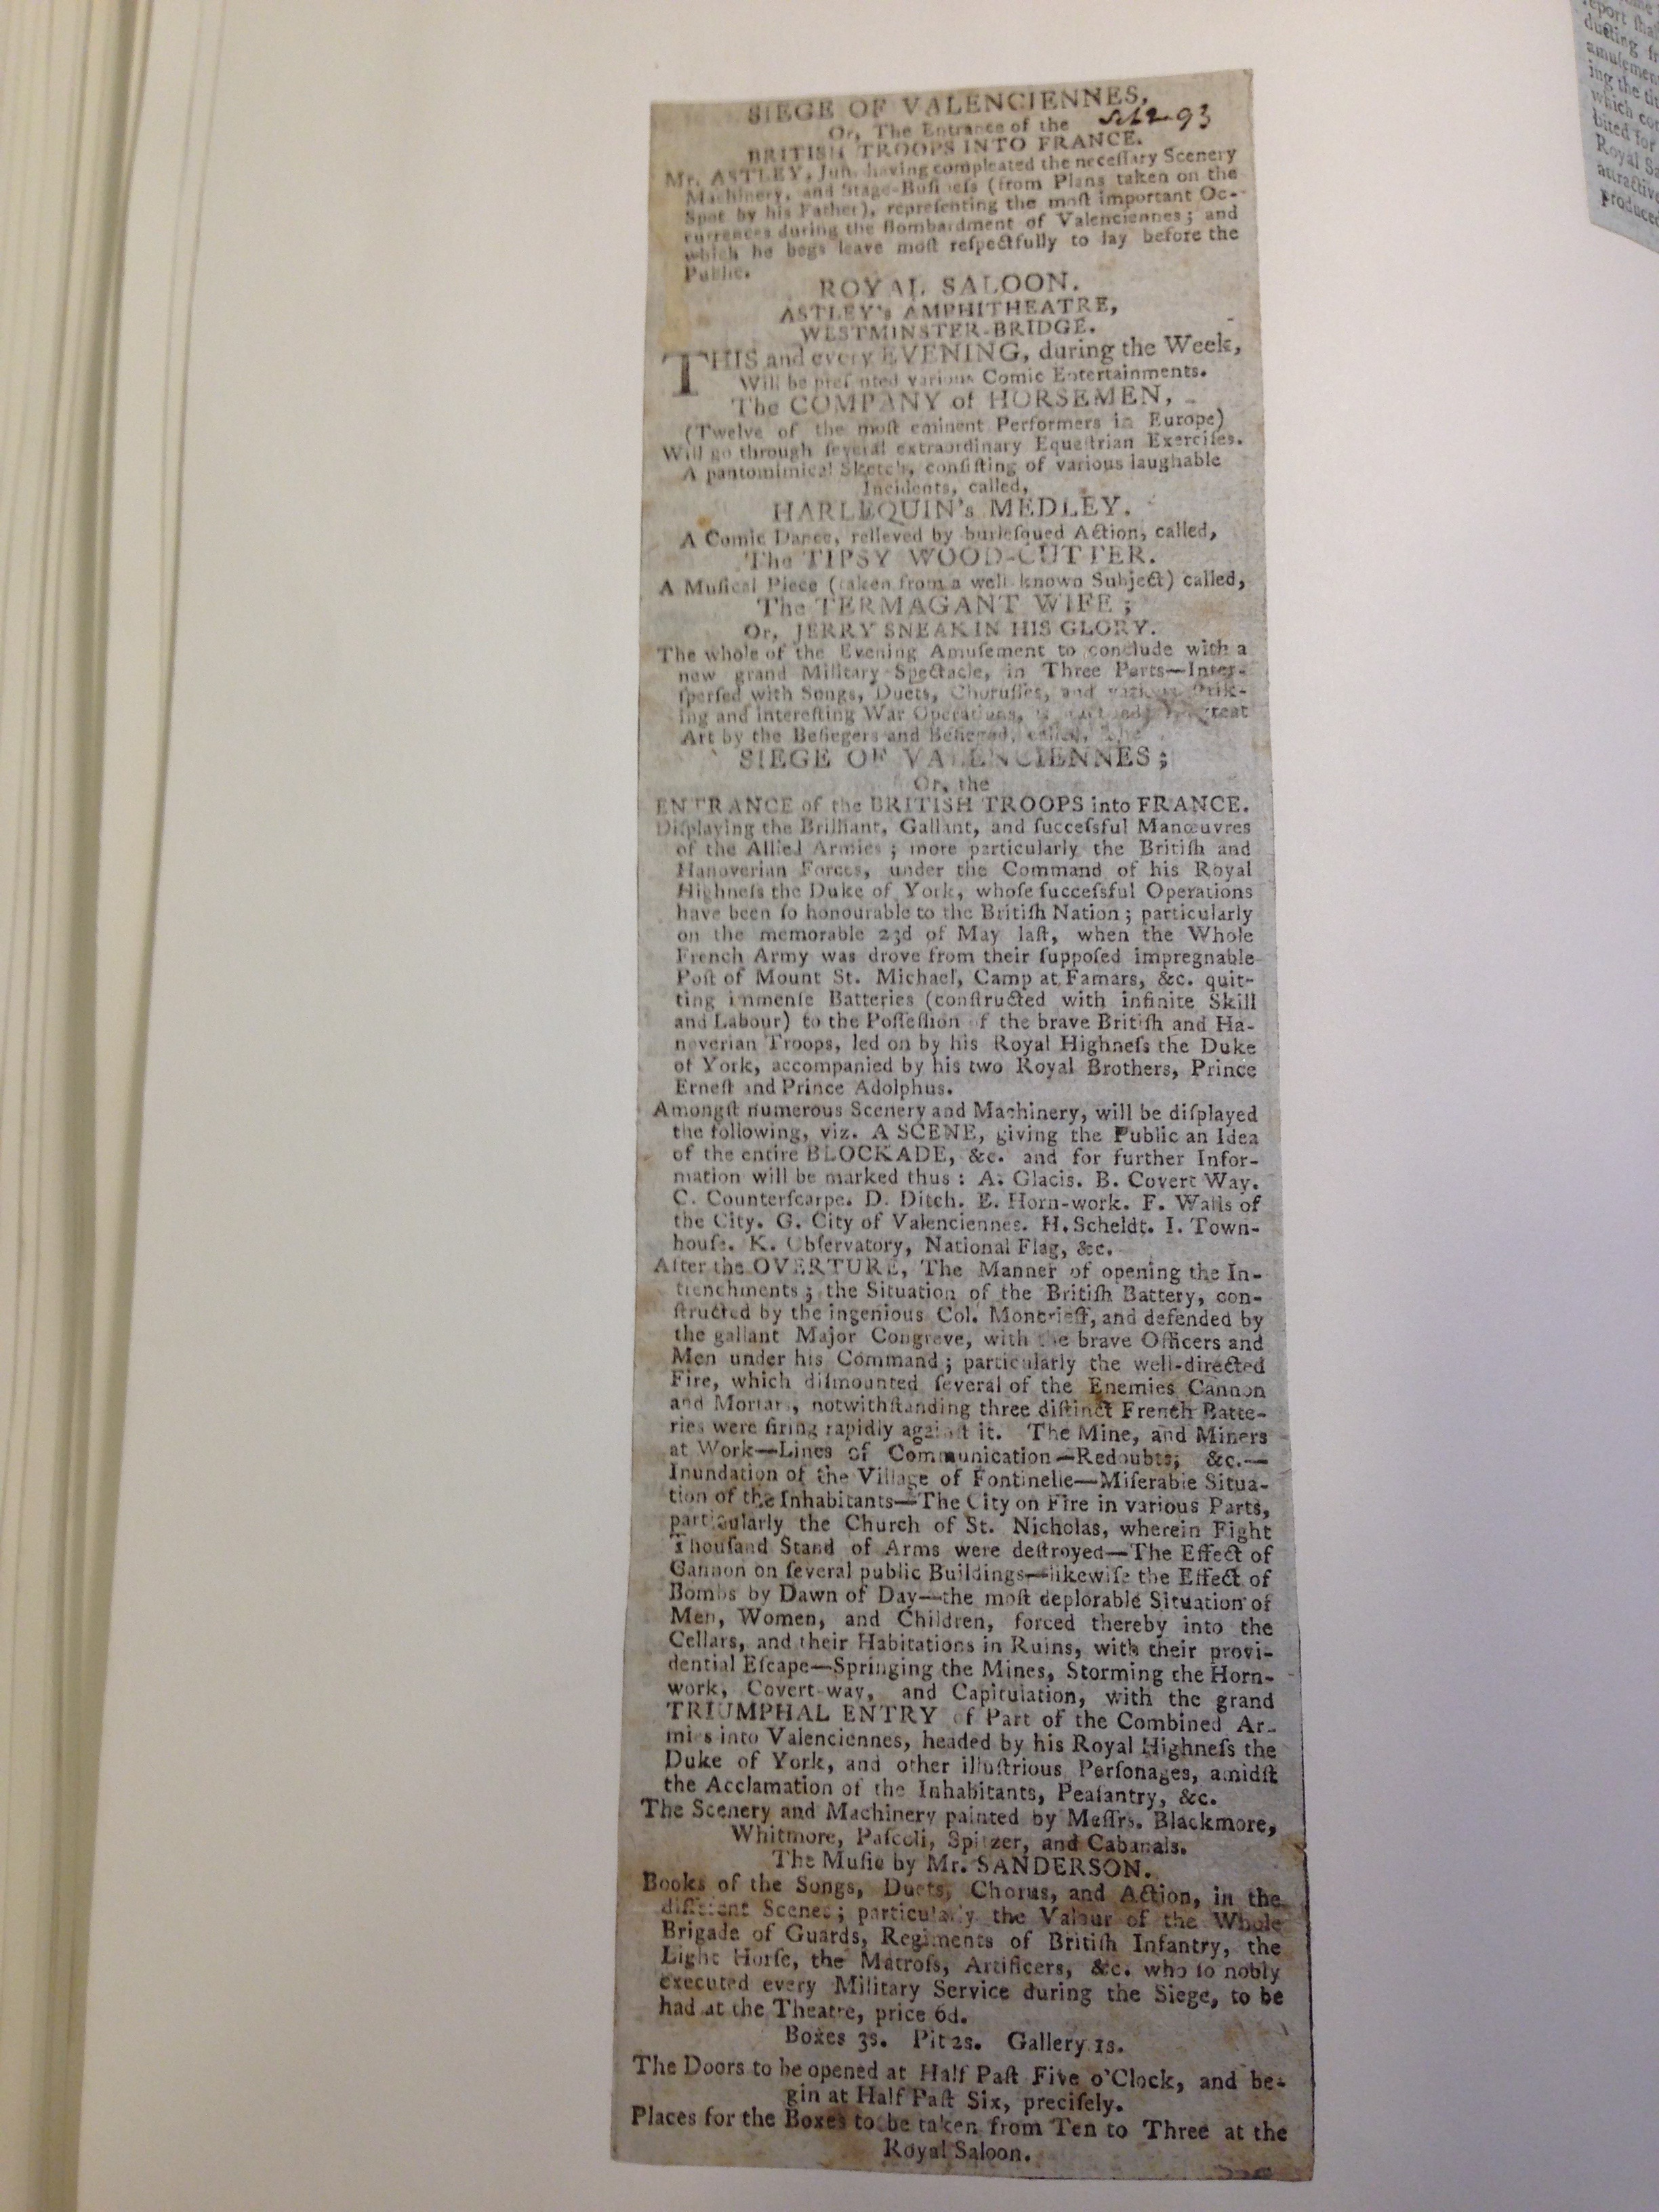 SIEGE OF VALENCIENNES,
Or, The Entrance of the
93
BRITISH TROOPS INTO FRANCE.
Mr. ASTLEY, Jun. having compleated the neceſſary Scenery
Machinery, and Stage-Buſineſs (from Plans taken on the
Spot by his Father), repreſenting the moſt important Oc-
currences during the Bombardment of Valenciennes; and
which he begs leave moſt reſpectfully to lay before the
Public.
ROYAL SALOON.
ASTLEY's AMPHITHEATRE,
WESTMINSTER-BRIDGE.
THIS and every EVENING, during the Week,
Will be preſented various Comic Entertainments.
The COMPANY of HORSEMEN,
(Twelve of the moſt eminent Performers in Europe)
Will go through ſeveral extraordinary Equeſtrian Exerciſes.
A pantomimical Sketch, conſiſting of various laughable
Incidents, called,
HARLEQUIN's MEDLEY.
A Comic Dance, relieved by burleſqued Action, called,
The TIPSY WOOD-CUTTER.
A Muſical Piece (taken from a well-known Subject) called,
The TERMAGANT WIFE;
Or, JERRY SNEAK IN HIS GLORY.
The whole of the Evening Amuſement to conclude with a
new grand Military Spectacle, in Three Parts—Inter-
ſperſed with Songs, Duets, Choruſſes, and
ing and intereſting War Operations, great
Art by the Beſiegers and Beſieged, called, The
SIEGE OF VALENCIENNES;
Or, the
ENTRANCE of the BRITISH TROOPS into FRANCE.
Diſplaying the Brilliant, Gallant, and ſucceſsful Manœuvres
of the Allied Armies; more particularly the Britiſh and
Hanoverian Forces, under the Command of his Royal
Highneſs the Duke of York, whoſe ſucceſsful Operations
have been ſo honourable to the Britiſh Nation; particularly
on the memorable 23d of May laſt, when the Whole
French Army was drove from their ſuppoſed impregnable
Poſt of Mount St. Michael, Camp at Famars, &c. quit-
ting immenſe Batteries (conſtructed with infinite Skill
and Labour) to the Poſſeſſion of the brave Britiſh and Ha-
noverian Troops, led on by his Royal Highneſs the Duke
of York, accompanied by his two Royal Brothers, Prince
Erneſt and Prince Adolphus.
Amongſt numerous Scenery and Machinery, will be diſplayed
the following, viz. A SCENE, giving the Public an Idea
of the entire BLOCKADE, &c. and for further Infor-
mation will be marked thus: A. Glacis. B. Covert Way.
C. Counterſcarpe. D. Ditch. E. Horn-work. F. Walls of
the City. G. City of Valenciennes. H. Scheldt. I. Town-
houſe. K. Obſervatory, National Flag, &c.
After the OVERTURE, The Manner of opening the In-
trenchments; the Situation of the Britiſh Battery, con-
ſtructed by the ingenious Col. Moncrieff, and defended by
the gallant Major Congreve, with the brave Officers and
Men under his Command; particularly the well-directed
Fire, which diſmounted ſeveral of the Enemies Cannon
and Mortars, notwithſtanding three diſtinct French Batte-
ries were firing rapidly againſt it. The Mine, and Miners
at Work—Lines of Communication—Redoubts; &c.—
Inundation of the Village of Fontinelle—Miſerable Situa-
tion of the Inhabitants—The City on Fire in various Parts,
particularly the Church of St. Nicholas, wherein Eight
Thouſand Stand of Arms were deſtroyed—The Effect of
Cannon on ſeveral public Buildings—likewiſe the Effect of
Bombs by Dawn of Day—the moſt deplorable Situation of
Men, Women, and Children, forced thereby into the
Cellars, and their Habitations in Ruins, with their provi-
dential Eſcape—Springing the Mines, Storming the Horn-
work, Covert-way, and Capitulation, with the grand
TRIUMPHAL ENTRY of Part of the Combined Ar-
mies into Valenciennes, headed by his Royal Highneſs the
Duke of York, and other illuſtrious Perſonages, amidſt
the Acclamation of the Inhabitants, Peaſantry, &c.
The Scenery and Machinery painted by Meſſrs. Blackmore,
Whitmore, Paſcoli, Spitzer, and Cabanals.
The Muſic by Mr. SANDERSON.
Books of the Songs, Duets, Chorus, and Action, in the
different Scenes; particularly the Valour of the Whole
Brigade of Guards, Regiments of Britiſh Infantry, the
Light Horſe, the Matroſs, Artificers, &c. who ſo nobly
executed every Military Service during the Siege, to be
had at the Theatre, price 6d.
Boxes 3s. Pit 2s. Gallery 1s.
The Doors to be opened at Half Paſt Five o'Clock, and be-
gin at Half Paſt Six, preciſely.
Places for the Boxes to be taken from Ten to Three at the
Royal Saloon.
report
ducting
ing the
which
bited for
Royal
attractive
produced